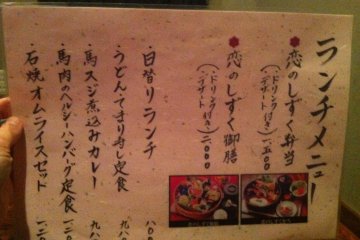 ランチメニュー
恋のしずく弁当
(ドリンク付き・デザート) 一五〇〇
恋のしずく御膳
(ドリンク付き・デザート) 二〇〇〇
日替りランチ 八〇〇
うどん・てまり寿し定食
馬スジ煮込みカレー 九八
馬肉のヘルシーハンバーグ定食
石焼オムライスセット